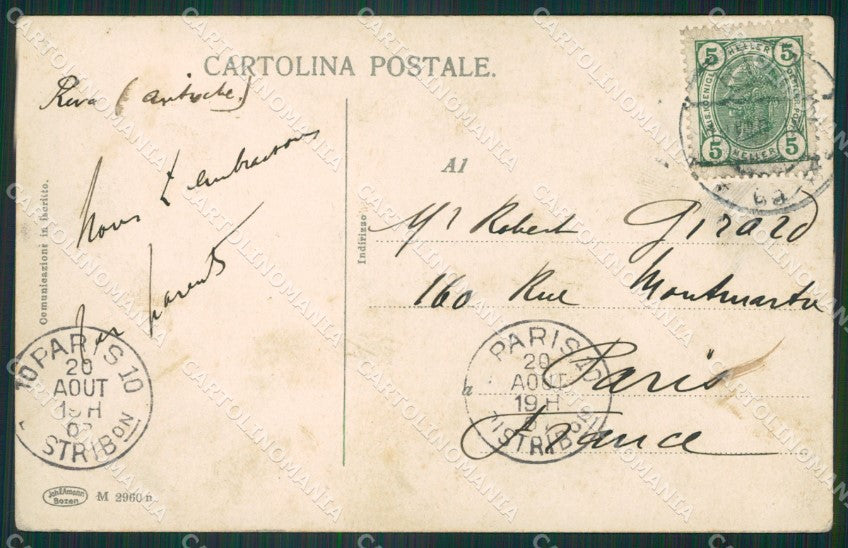 CARTOLINA POSTALE.
Riva (Autriche)
Nous t'embrassons
parents
Comunicazione in iscritto.
Indirizzo
Al
Mr Robert Girard
160 Rue Montmartre
Paris
France
5 HELLER 5
5 HELLER 5
10 PARIS 10
20
AOUT
19 H
DISTRIBON
PARIS
20
AOUT
19 H
DISTRIBON
Joh.F.Amonn
Bozen
M 2960 n.
CARTOLINOMANIA